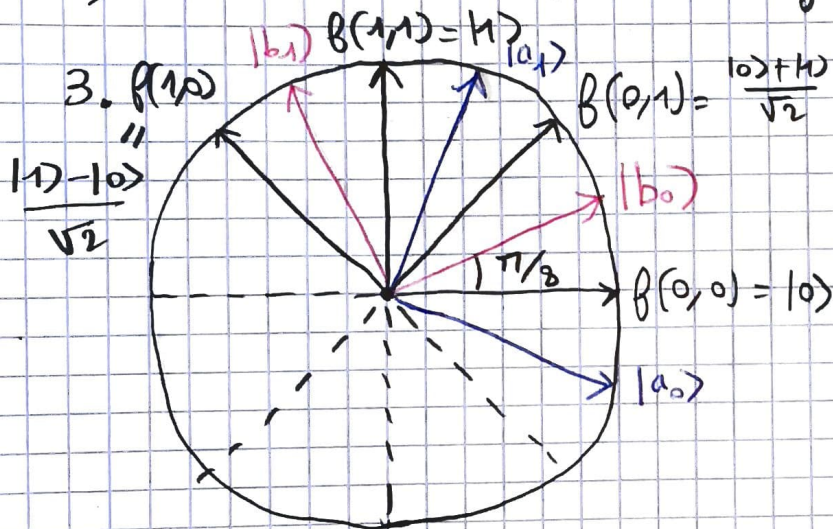 |b1⟩ f(1,1) = |1⟩ |a1⟩
3. f(1,0) = (|1⟩-|0⟩)/√2
f(0,1) = (|0⟩+|1⟩)/√2
|b0⟩
π/8
f(0,0) = |0⟩
|a0⟩